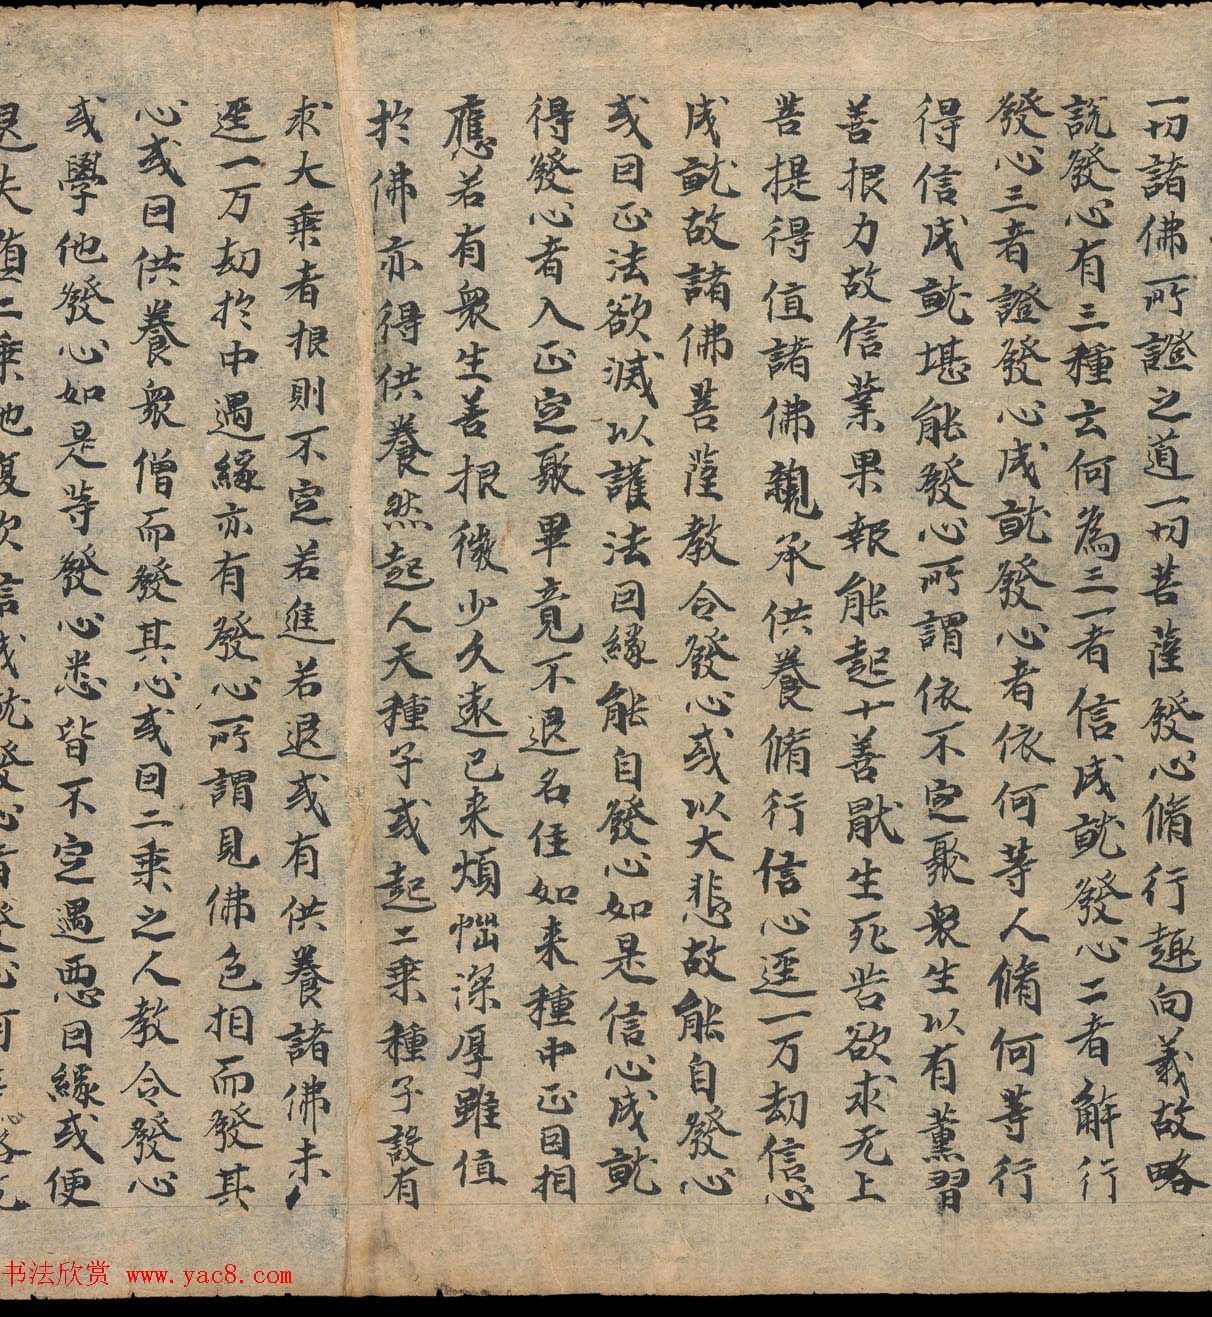 一切諸佛所證之道一切菩薩發心脩行趣向義故略
說發心有三種云何為三一者信成就發心二者解行
發心三者證發心成就發心者依何等人脩何等行
得信成就堪能發心所謂依不定聚衆生以有薰習
善根力故信業果報能起十善猒生死苦欲求无上
菩提得值諸佛親承供養脩行信心逕一万劫信心
成就故諸佛菩薩教令發心或以大悲故能自發心
或因正法欲滅以護法因緣能自發心如是信心成就
得發心者入正定聚畢竟不退名住如来種中正因相
應若有衆生善根微少久遠已来煩惱深厚雖值
於佛亦得供養然起人天種子或起二乘種子設有
求大乘者根則不定若進若退或有供養諸佛未
逕一万劫於中遇緣亦有發心所謂見佛色相而發其
心或因供養衆僧而發其心或因二乘之人教令發心
或學他發心如是等發心悉皆不定遇惡因緣或便
退失墮二乘地復次信成就發心者發心有
书法欣赏 www.yac8.com